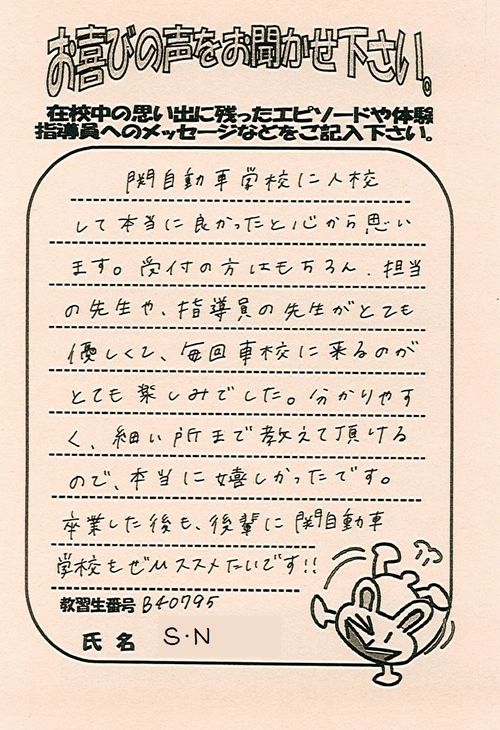 お喜びの声をお聞かせ下さい。
在校中の思い出に残ったエピソードや体験
指導員へのメッセージなどをご記入下さい。
関自動車学校に入校
して本当に良かったと心から思い
ます。受付の方はもちろん、担当
の先生や、指導員の先生がとても
優しくて、毎回車校に来るのが
とても楽しみでした。分かりやす
く、細い所まで教えて頂ける
ので、本当に嬉しかったです。
卒業した後も、後輩に関自動車
学校をぜひススメたいです!!
教習生番号 B40795
氏名 S・N